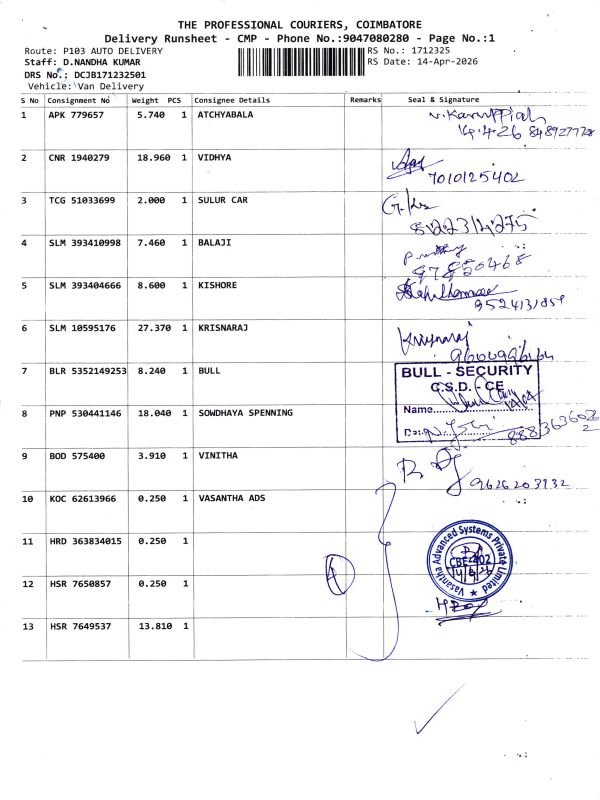 THE PROFESSIONAL COURIERS, COIMBATORE
Delivery Runsheet - CMP - Phone No.:9047080280 - Page No.:1
Route: P103 AUTO DELIVERY
RS No.: 1712325
Staff: D.NANDHA KUMAR
RS Date: 14-Apr-2026
DRS No.: DCJB171232501
Vehicle: Van Delivery
S No Consignment No Weight PCS Consignee Details Remarks Seal & Signature
1 APK 779657 5.740 1 ATCHYABALA
14.4.26
2 CNR 1940279 18.960 1 VIDHYA
7010125402
3 TCG 51033699 2.000 1 SULUR CAR
4 SLM 393410998 7.460 1 BALAJI
5 SLM 393404666 8.600 1 KISHORE
6 SLM 10595176 27.370 1 KRISNARAJ
Krisnaraj
7 BLR 5352149253 8.240 1 BULL
BULL - SECURITY
G.S.D. - CE
Name
8 PNP 530441146 18.040 1 SOWDHAYA SPENNING
9 BOD 575400 3.910 1 VINITHA
10 KOC 62613966 0.250 1 VASANTHA ADS
11 HRD 363834015 0.250 1
Vasantha Advanced Systems Private Limited
12 HSR 7650857 0.250 1
4
13 HSR 7649537 13.810 1